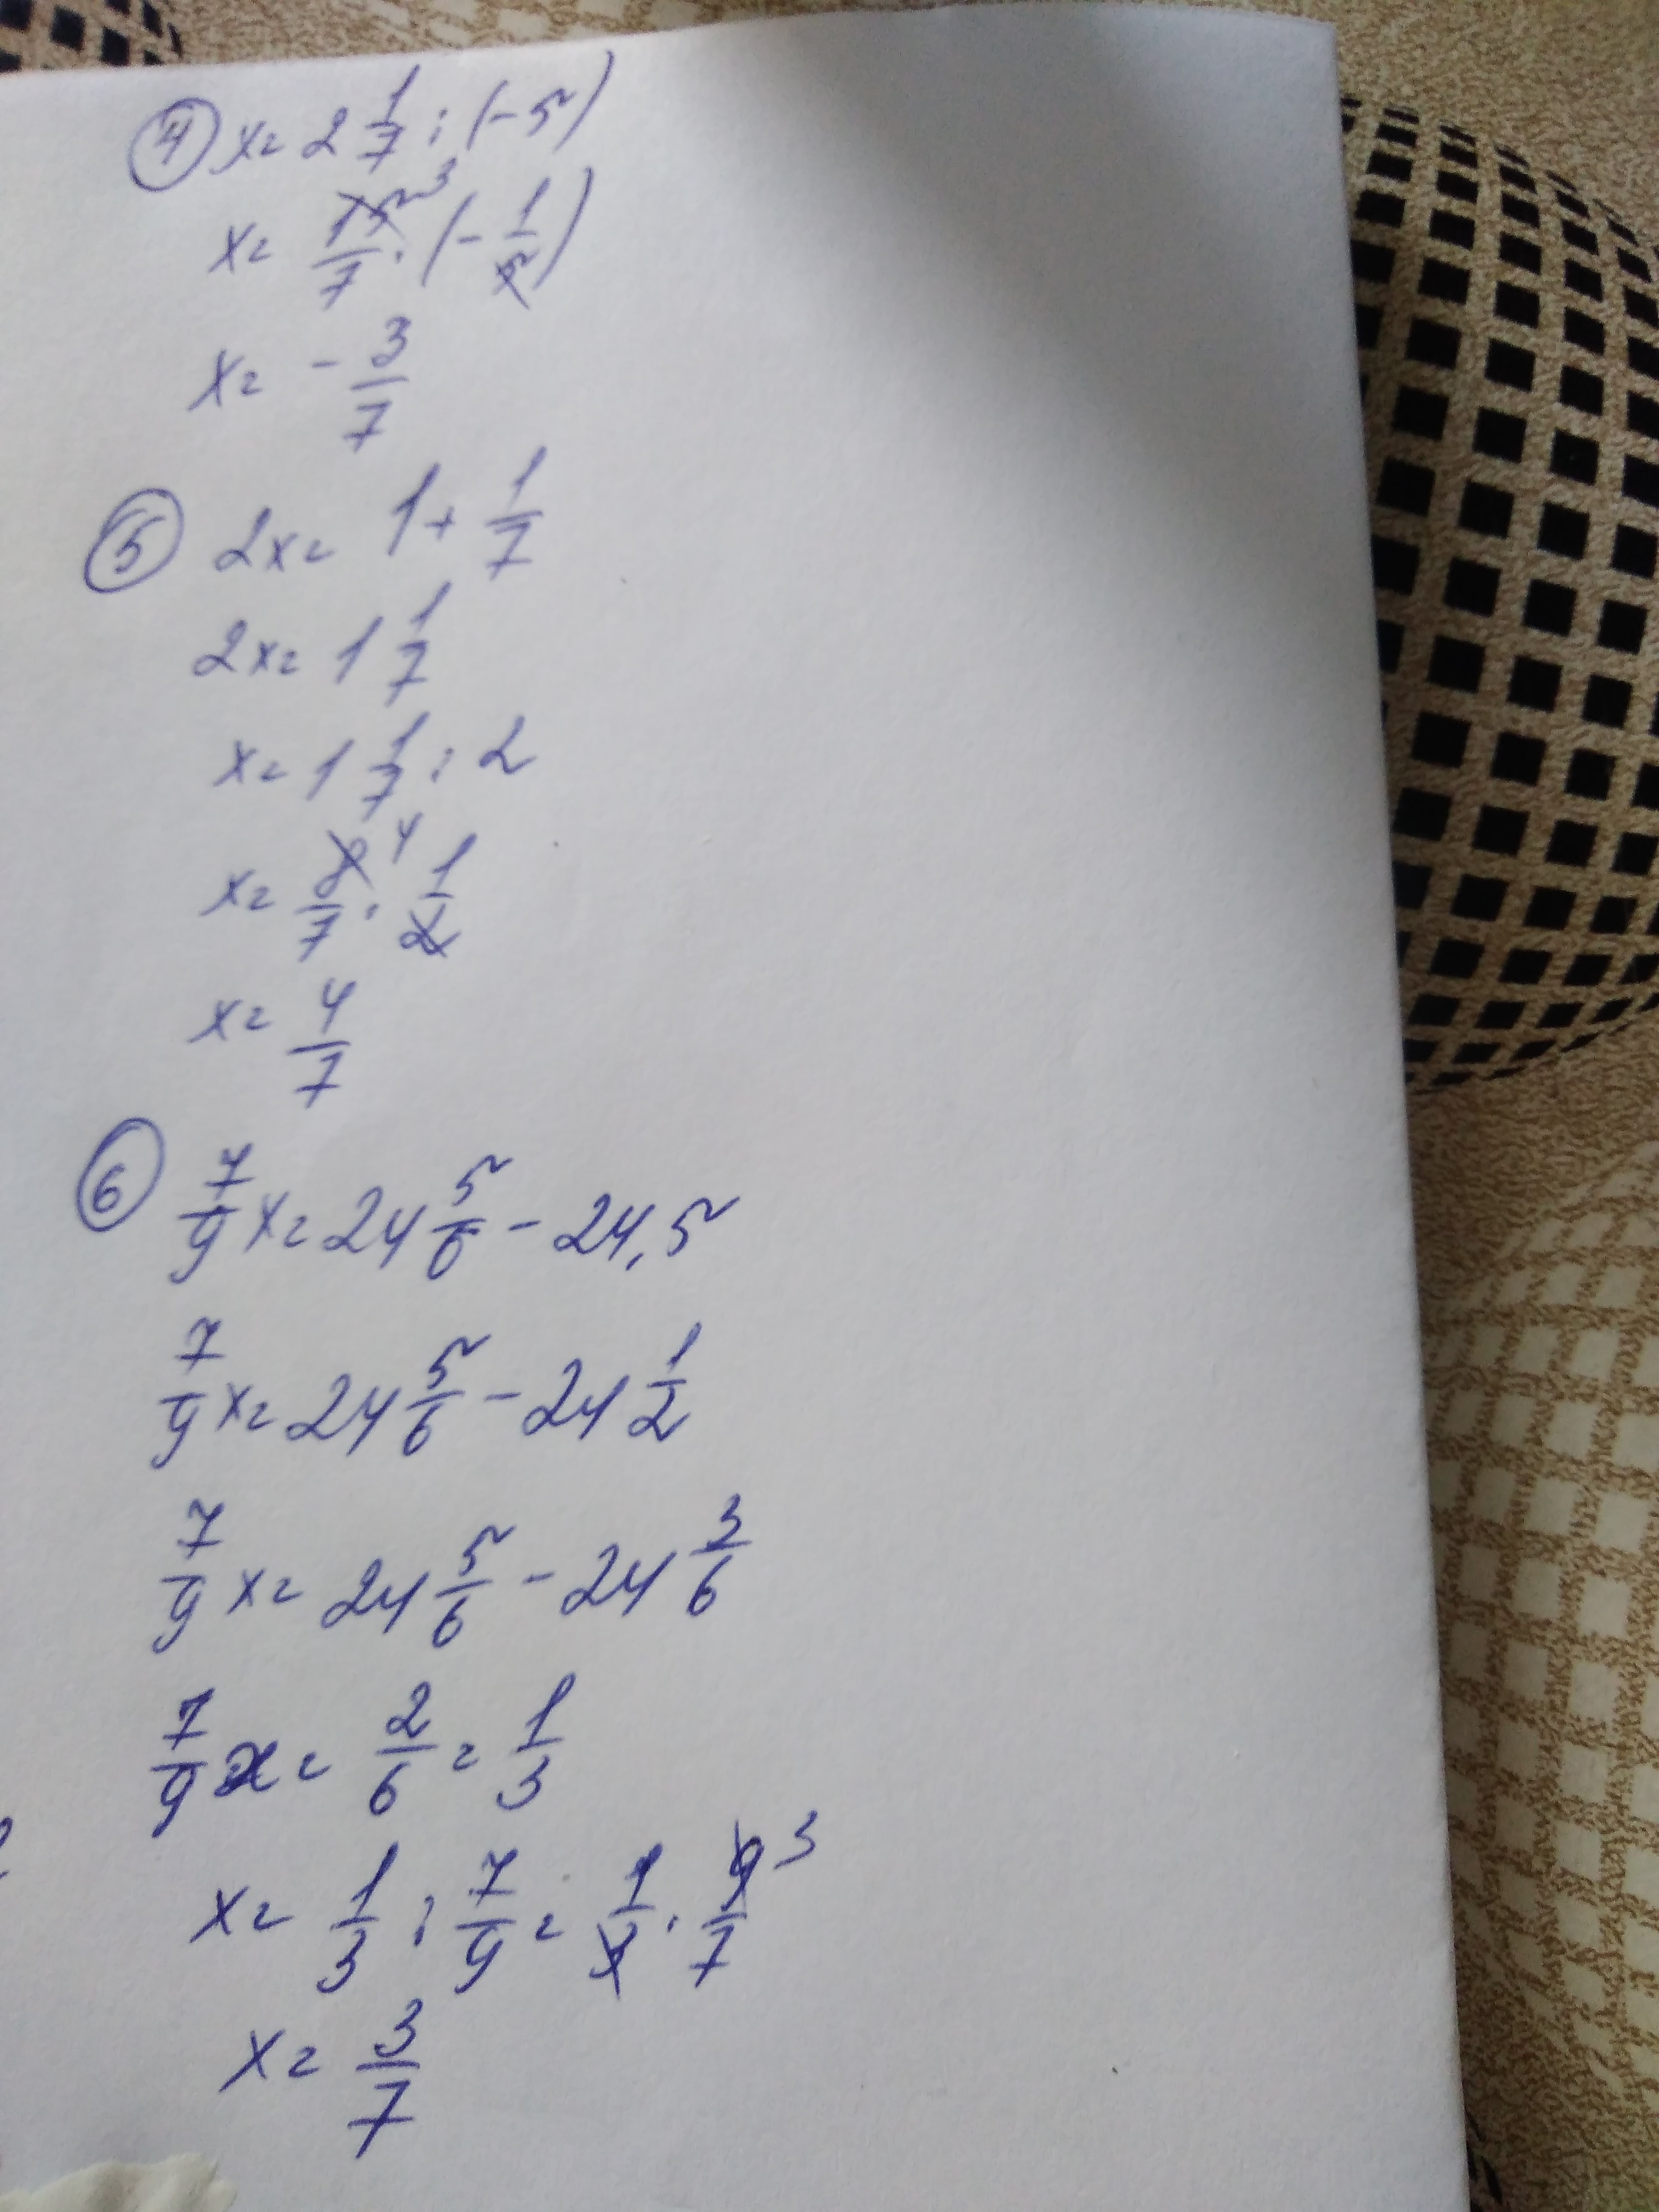 ④ x = 2 1/7 : (-5)
x = 15/7 · (-1/5) 3
x = - 3/7
⑤ 2x = 1 + 1/7
2x = 1 1/7
x = 1 1/7 : 2
x = 8/7 · 1/2 4
x = 4/7
⑥ 7/9 x = 24 5/6 - 24,5
7/9 x = 24 5/6 - 24 1/2
7/9 x = 24 5/6 - 24 3/6
7/9 x = 2/6 = 1/3
x = 1/3 : 7/9 = 1/3 · 9/7 3
x = 3/7